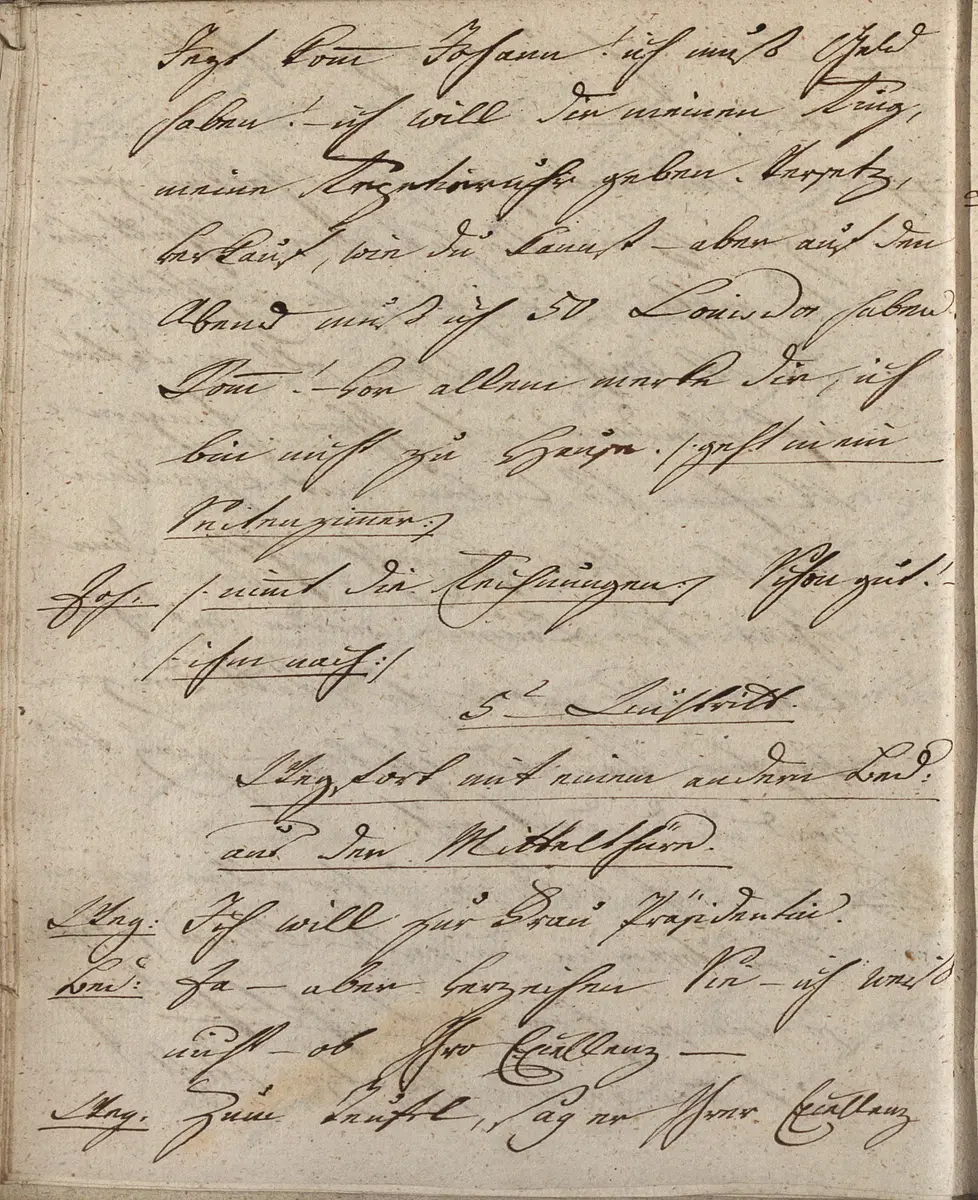 Jezt kom̅ Johann! ich muß Geld
haben! – ich will dir meinen Ring,
meine Repetieruhr geben. Versetz,
verkauf, wie du kannst – aber auf den
Abend muß ich 50 Louisdor haben.
Kom̅! – vor allem merke dir, ich
bin nicht zu Hause. /: geht in ein
Seitenzimmer :/
Joh. /: nim̅t die Rechnungen :/ Schon gut! –
/: ihm nach :/
5r Auftritt.
Wegfort mit einem andern Bed:
aus der Mittelthüre.
Weg: Ich will zur Frau Präsidentin.
Bed: Ja – aber verzeihen Sie – ich weiß
nicht – ob Ihro Excellenz –
Weg. Zum Teufel, sag er Ihrer Excellenz